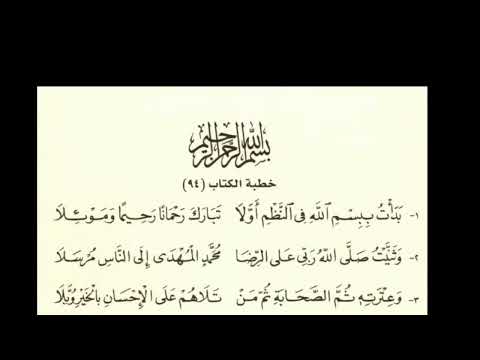 بسم الله الرحمن الرحيم
خطبة الكتاب (٩٤)
١- بَدَأْتُ بِبِسْمِ اللَّهِ فِي النَّظْمِ أَوَّلَا تَبَارَكَ رَحْمَانًا رَحِيمًا وَمَوْئِلَا
٢- وَثَنَّيْتُ صَلَّى اللَّهُ رَبِّي عَلَى الرِّضَا مُحَمَّدٍ الْمُهْدَى إِلَى النَّاسِ مُرْسَلَا
٣- وَعِتْرَتِهِ ثُمَّ الصَّحَابَةِ ثُمَّ مَنْ تَلَاهُمْ عَلَى الْإِحْسَانِ بِالْخَيْرِ وُبَّلَا